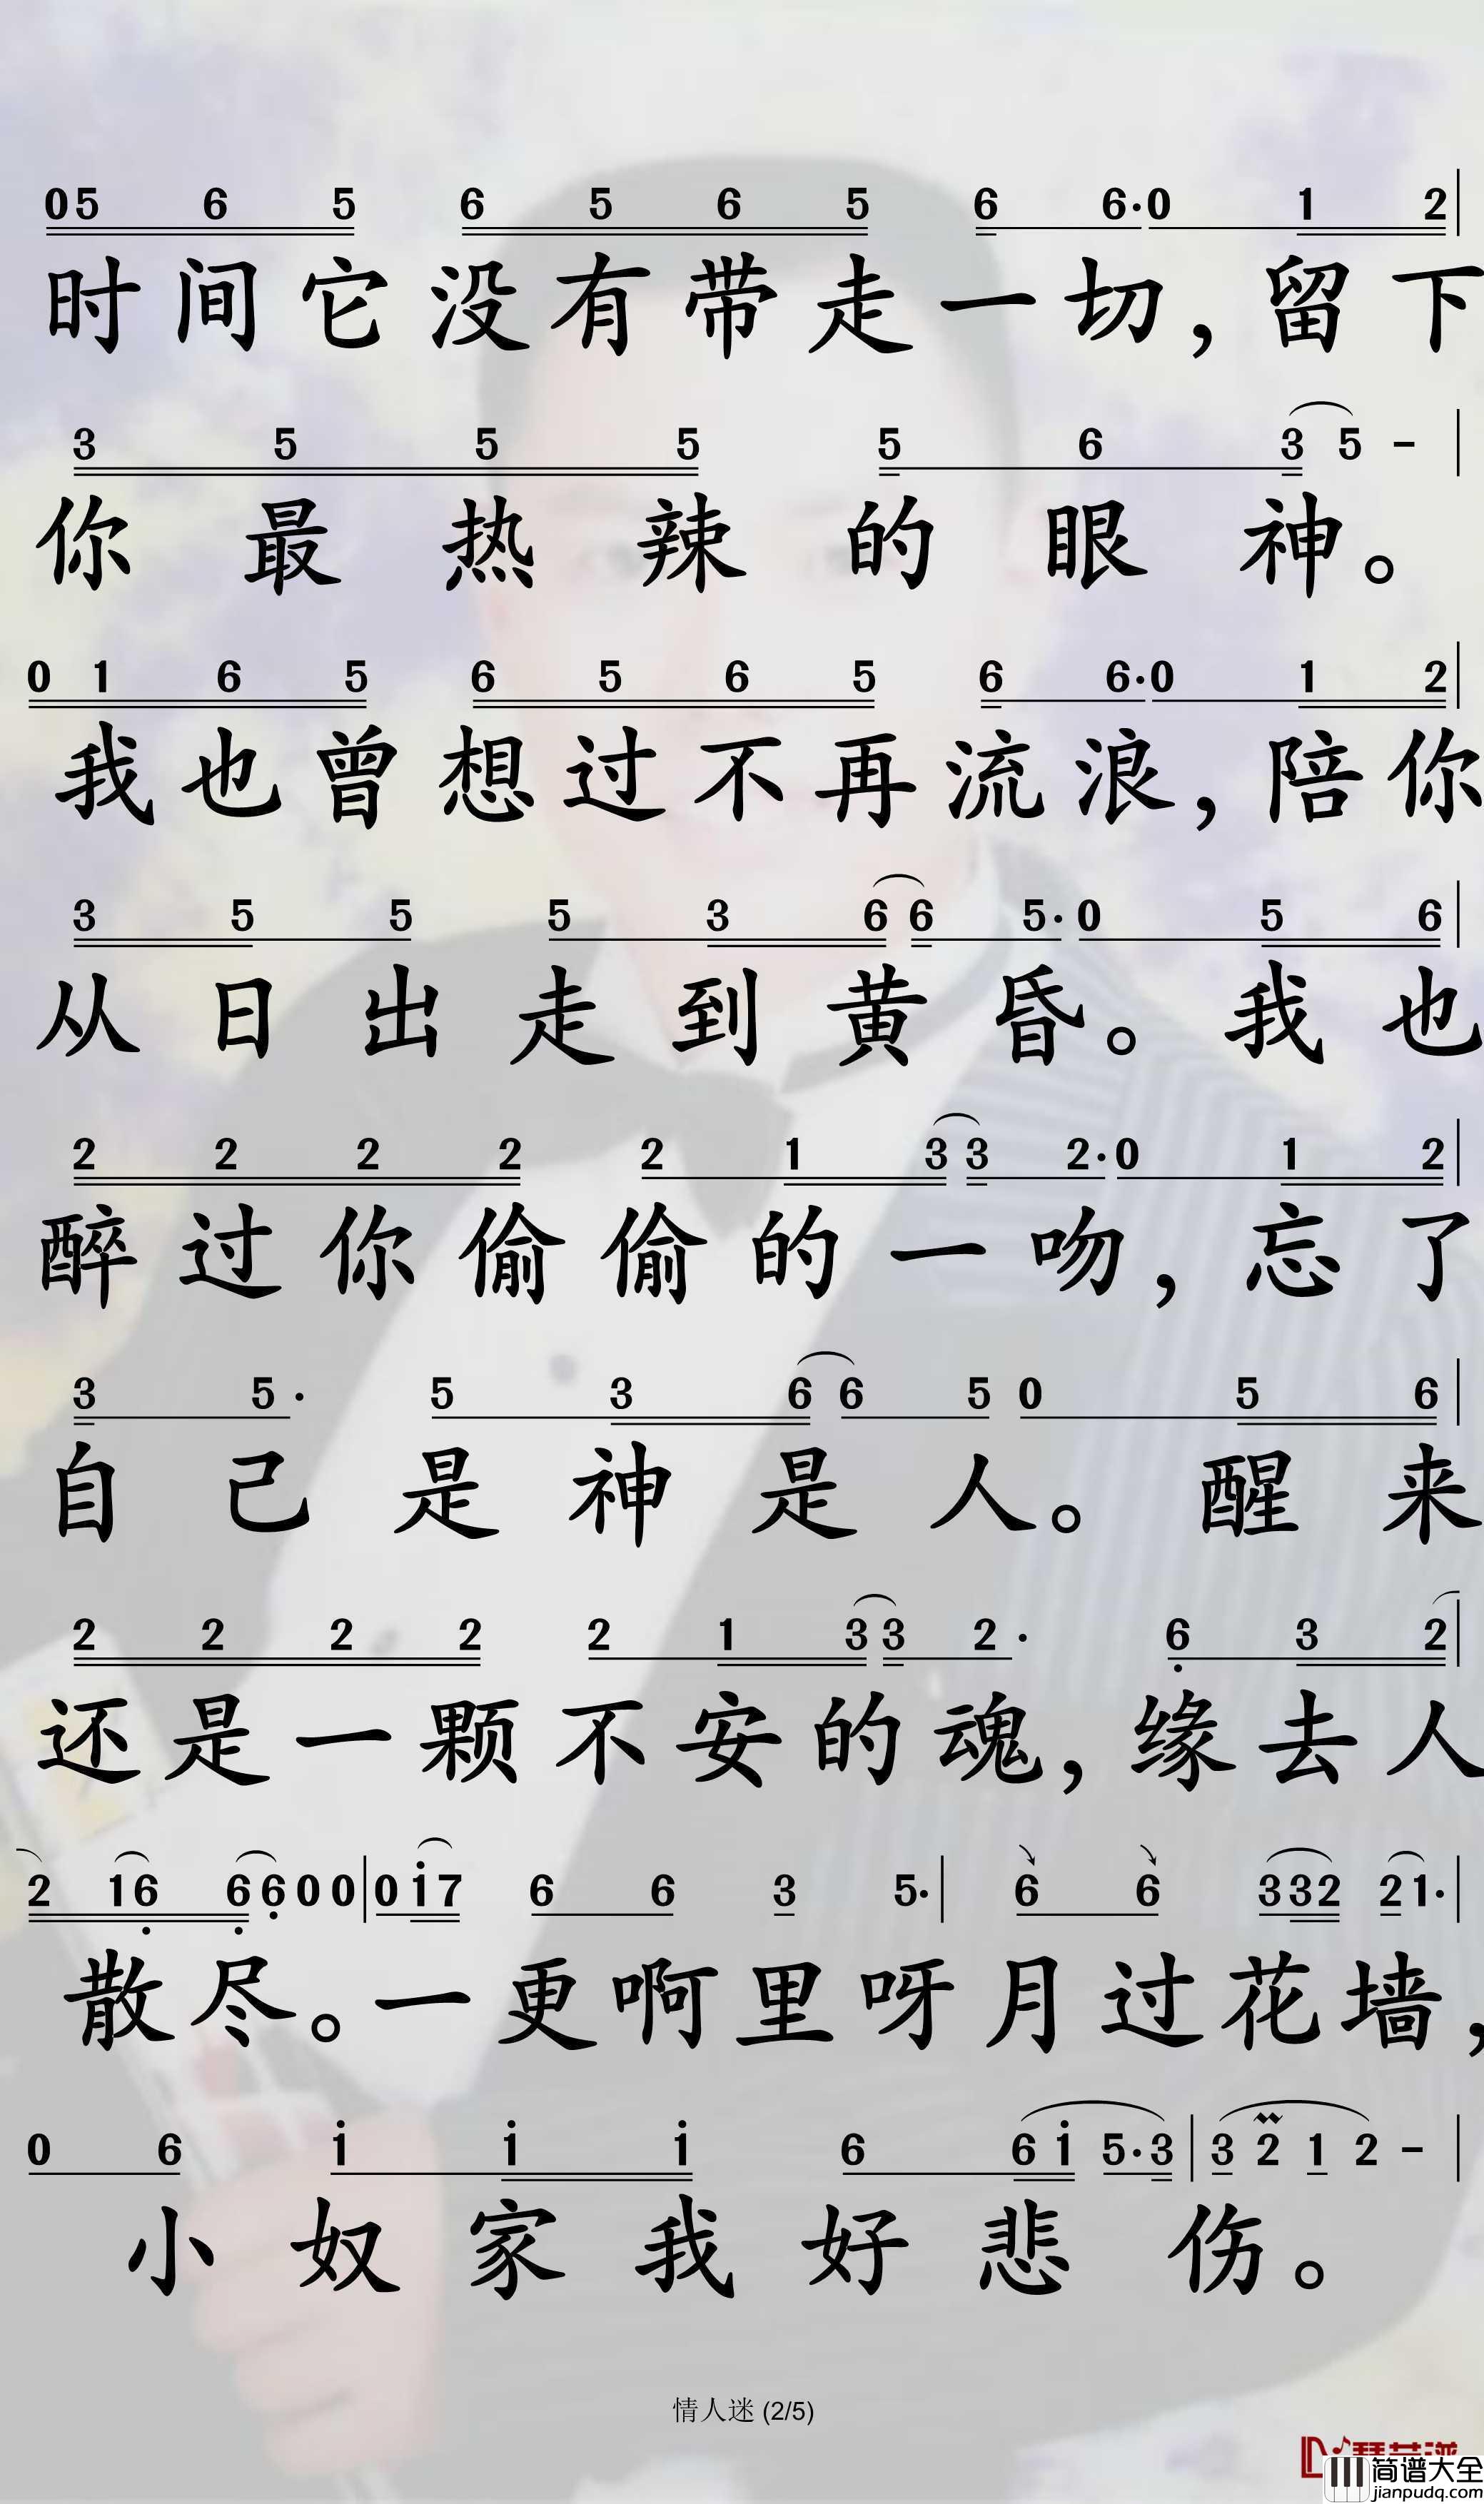 05 6 5 6 5 6 5 6 6·0 1 2
时间它没有带走一切，留下
3 5 5 5 5 6 3 5 -
你最热辣的眼神。
0 1 6 5 6 5 6 5 6 6·0 1 2
我也曾想过不再流浪，陪你
3 5 5 5 3 6 6 5·0 5 6
从日出走到黄昏。我也
2 2 2 2 2 1 3 3 2·0 1 2
醉过你偷偷的一吻，忘了
3 5· 5 3 6 6 5 0 5 6
自己是神是人。醒来
2 2 2 2 2 1 3 3 2· 6 3 2
还是一颗不安的魂，缘去人
2 16 6 6 0 0 0 17 6 6 3 5· 6 6 332 2 1·
散尽。一更啊里呀月过花墙，
0 6 1 1 1 6 6 1 5·3 3 2 1 2 -
小奴家我好悲伤。
情人迷 (2/5)
简谱大全
jianpudq.com